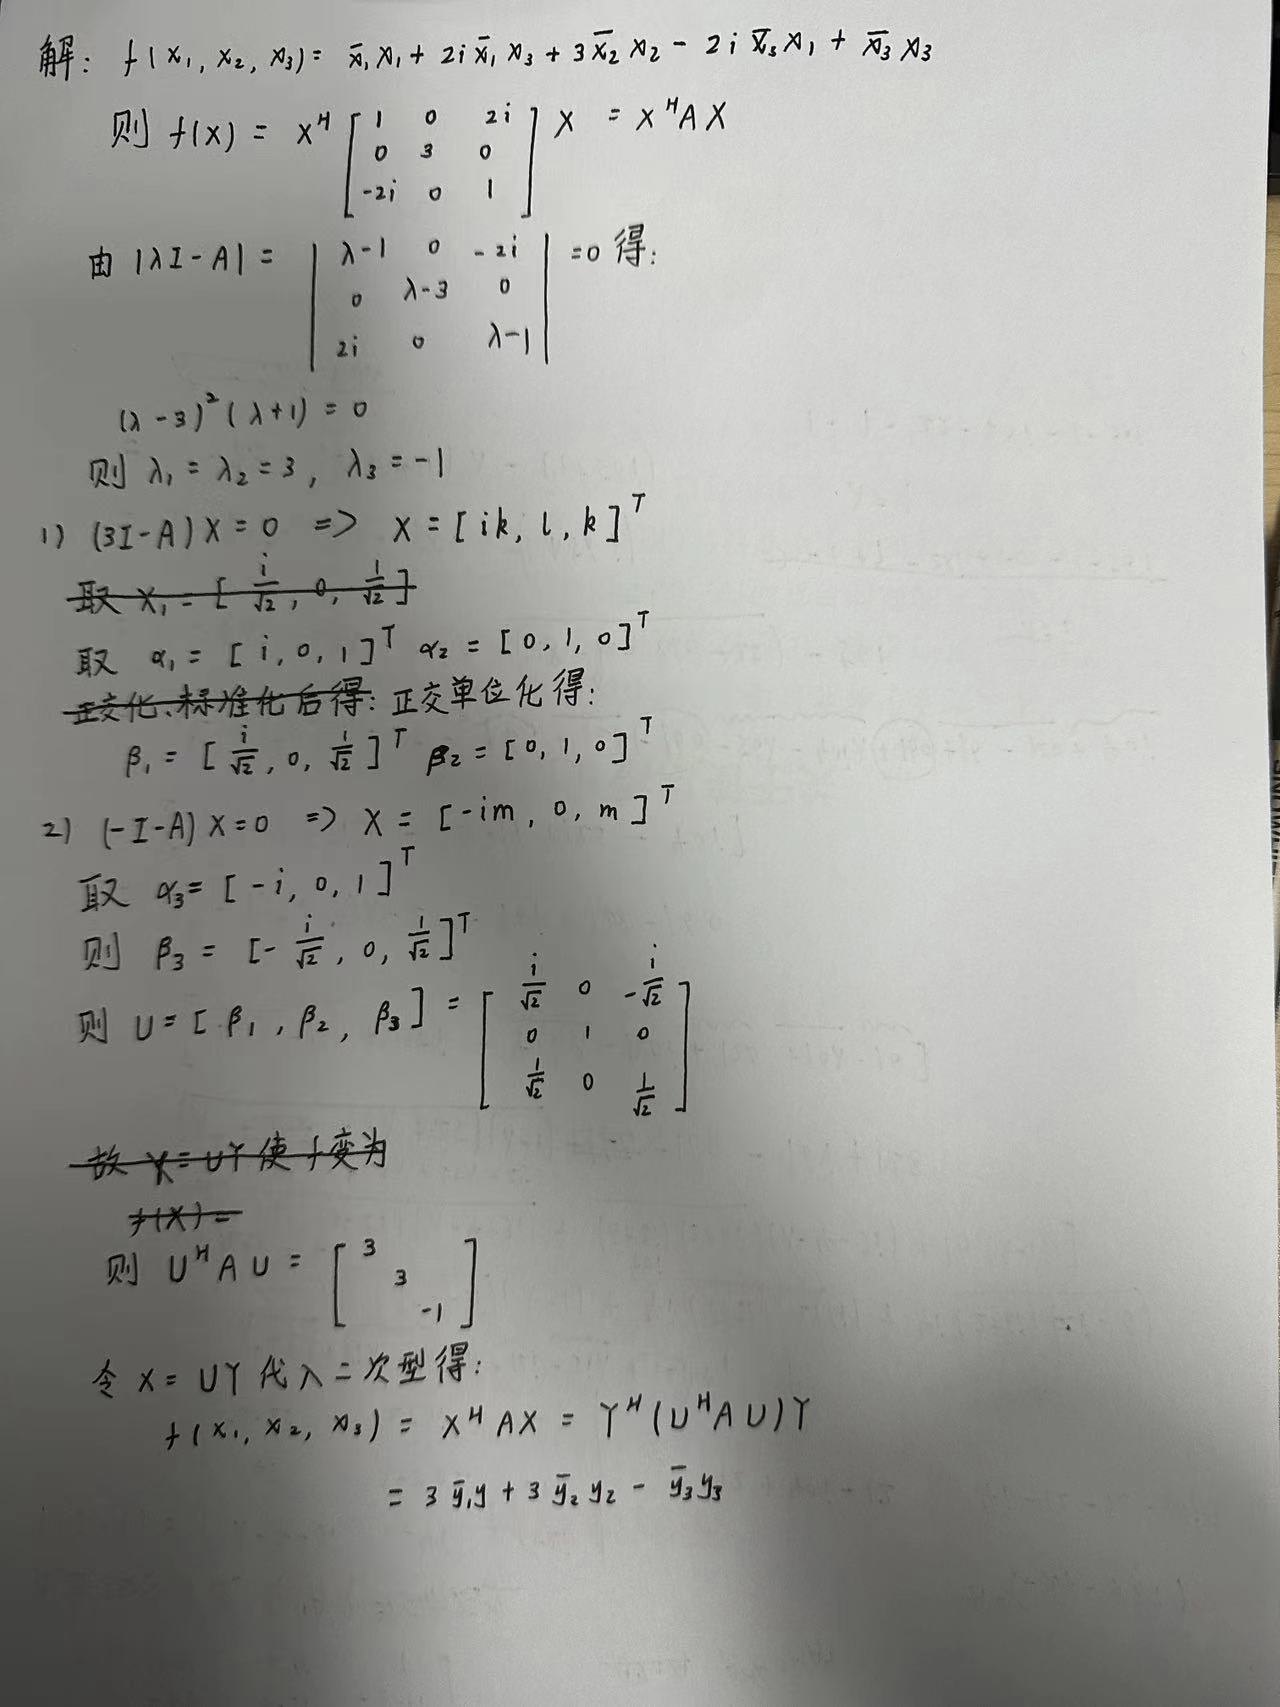 解: f(x₁, x₂, x₃) = x̄₁x₁ + 2i x̄₁x₃ + 3x̄₂x₂ - 2i x̄₃x₁ + x̄₃x₃
则 f(X) = Xᴴ [1 0 2i; 0 3 0; -2i 0 1] X = XᴴAX
由 |λI-A| = |λ-1 0 -2i; 0 λ-3 0; 2i 0 λ-1| = 0 得:
(λ-3)²(λ+1) = 0
则 λ₁ = λ₂ = 3, λ₃ = -1
1) (3I-A)X = 0 => X = [ik, l, k]ᵀ
取 X₁ = [i/√2, 0, 1/√2]
取 α₁ = [i, 0, 1]ᵀ α₂ = [0, 1, 0]ᵀ
正交化、标准化后得: 正交单位化得:
β₁ = [i/√2, 0, 1/√2]ᵀ β₂ = [0, 1, 0]ᵀ
2) (-I-A)X=0 => X = [-im, 0, m]ᵀ
取 α₃ = [-i, 0, 1]ᵀ
则 β₃ = [-i/√2, 0, 1/√2]ᵀ
则 U = [β₁, β₂, β₃] = [i/√2 0 -i/√2; 0 1 0; 1/√2 0 1/√2]
故 X = UY 使 f 变为
f(X) =
则 UᴴAU = [3 3 -1]
令 X = UY 代入二次型得:
f(x₁, x₂, x₃) = XᴴAX = Yᴴ(UᴴAU)Y
= 3ȳ₁y + 3ȳ₂y₂ - ȳ₃y₃